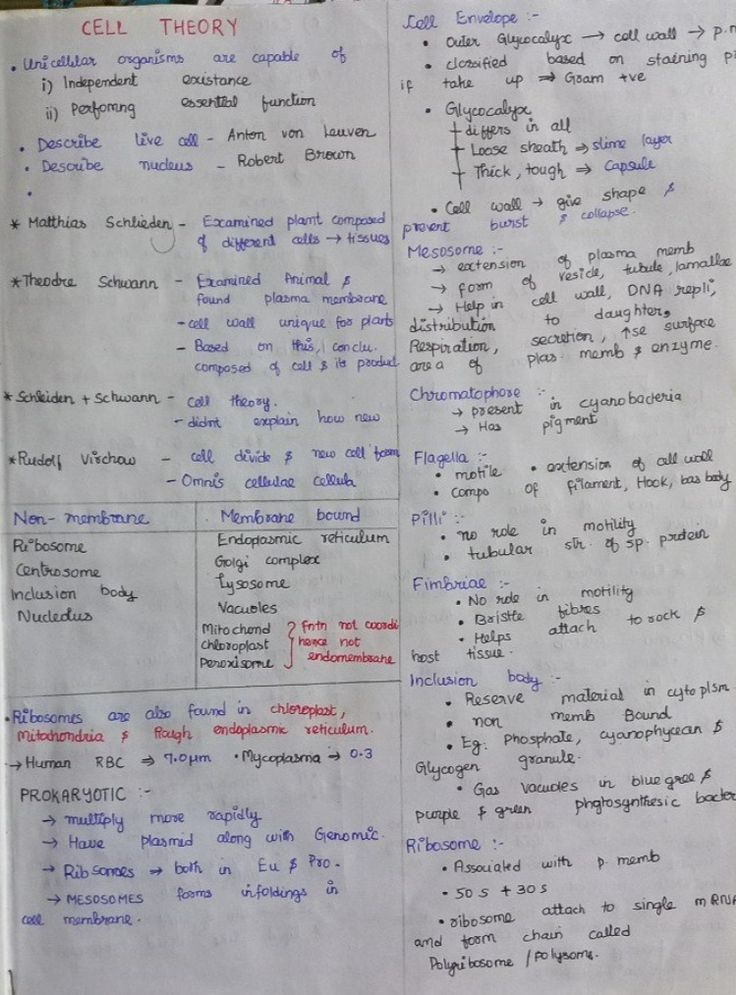 CELL THEORY
• Unicellular organisms are capable of
i) Independent existance
ii) Perfomng essential function
• Describe live cell - Anton von Leuven
• Describe nucleus - Robert Brown
•
* Matthias Schlieden - Examined plant composed
of different cells → tissues
* Theodre Schwann - Examined Animal &
found plasma membrane
- cell wall unique for plants
- Based on this, conclu.
composed of cell & its product
* Schleiden + Schwann - cell theory.
- didnt explain how new
* Rudolf Virchow - cell divide & new cell form
- Omnis cellulae cellula
Non-membrane | Membrane bound
Ribosome
Centrosome
Inclusion body
Nucleolus
Endoplasmic reticulum
Golgi complex
Lysosome
Vacuoles
Mitochond
chloroplast
Peroxisome
Fntn not coordi
hence not
endomembrane
• Ribosomes are also found in chloroplast,
Mitochondria & Rough endoplasmic reticulum.
→ Human RBC ⇒ 7.0 μm • Mycoplasma → 0.3
PROKARYOTIC :-
→ multiply more rapidly
→ Have plasmid along with Genomic.
→ Ribsomes → both in Eu & Pro.
→ MESOSOMES forms infoldings in
cell membrane.
Cell Envelope :-
• Outer Glycocalyx → cell wall → p.m
• classified based on staining
if take up ⇒ Gram +ve
• Glycocalyx
→ differs in all
→ Loose sheath ⇒ slime layer
→ Thick, tough ⇒ Capsule
• Cell wall → give shape &
prevent burst & collapse.
Mesosome :-
→ extension of plasma memb
→ form of vesicle, tubule, lamallae
→ Help in cell wall, DNA repli,
distribution to daughter,
Respiration, secretion, ↑se surface
area of plas. memb & enzyme.
Chromatophore :-
→ present in cyanobacteria
→ Has pigment
Flagella :-
• motile • extension of cell wall
• Compo of filament, Hook, bas body
Pilli :-
• no role in motility
• tubular str. of sp. protein
Fimbriae :-
• No role in motility
• Bristle fibres
• Helps attach to rock &
host tissue.
Inclusion body :-
• Reserve material in cytoplsm
• non memb Bound
• Eg: Phosphate, cyanophycean &
Glycogen granule.
• Gas vacuoles in blue gree &
purple & green photosynthesic bacter
Ribosome :-
• Associated with p. memb
• 50 s + 30 s
• ribosome attach to single mRNA
and form chain called
Polyribosome / polysome.